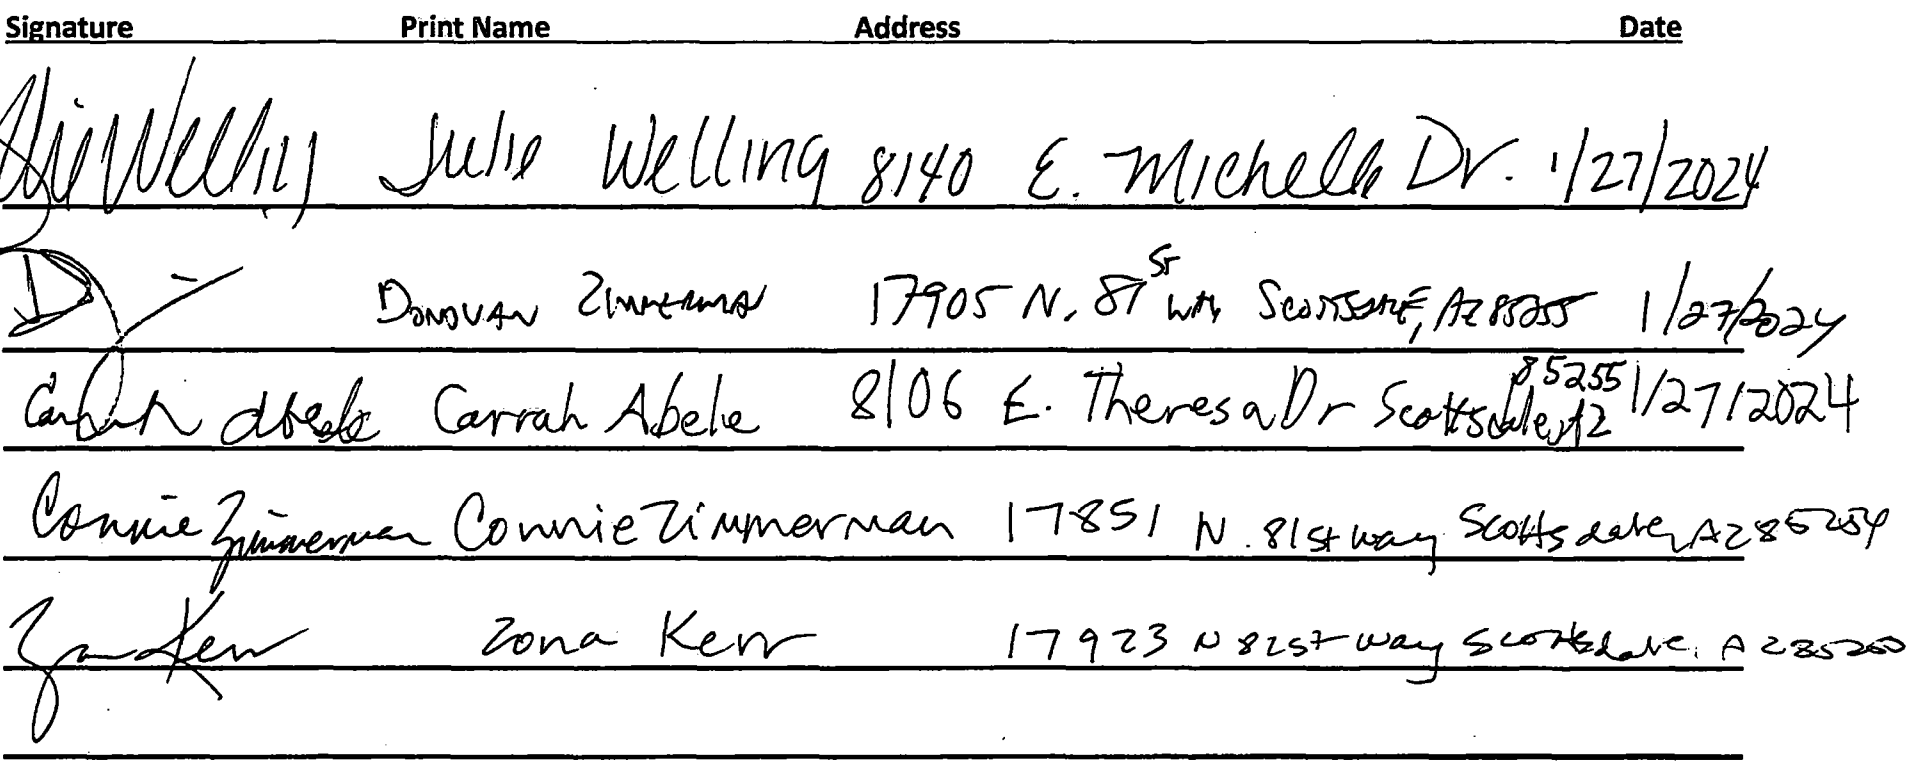 Signature Print Name Address Date
Julie Welling 8140 E. Michelle Dr. 1/27/2024
Donovan Zimmerman 17905 N. 81st Way Scottsdale, AZ 85255 1/27/2024
Carrah Abele Carrah Abele 8106 E. Theresa Dr Scottsdale, AZ 85255 1/27/2024
Connie Zimmerman Connie Zimmerman 17851 N. 81st way Scottsdale, AZ
Kerr Zona Kerr 17923 N 82st way Scottsdale, AZ